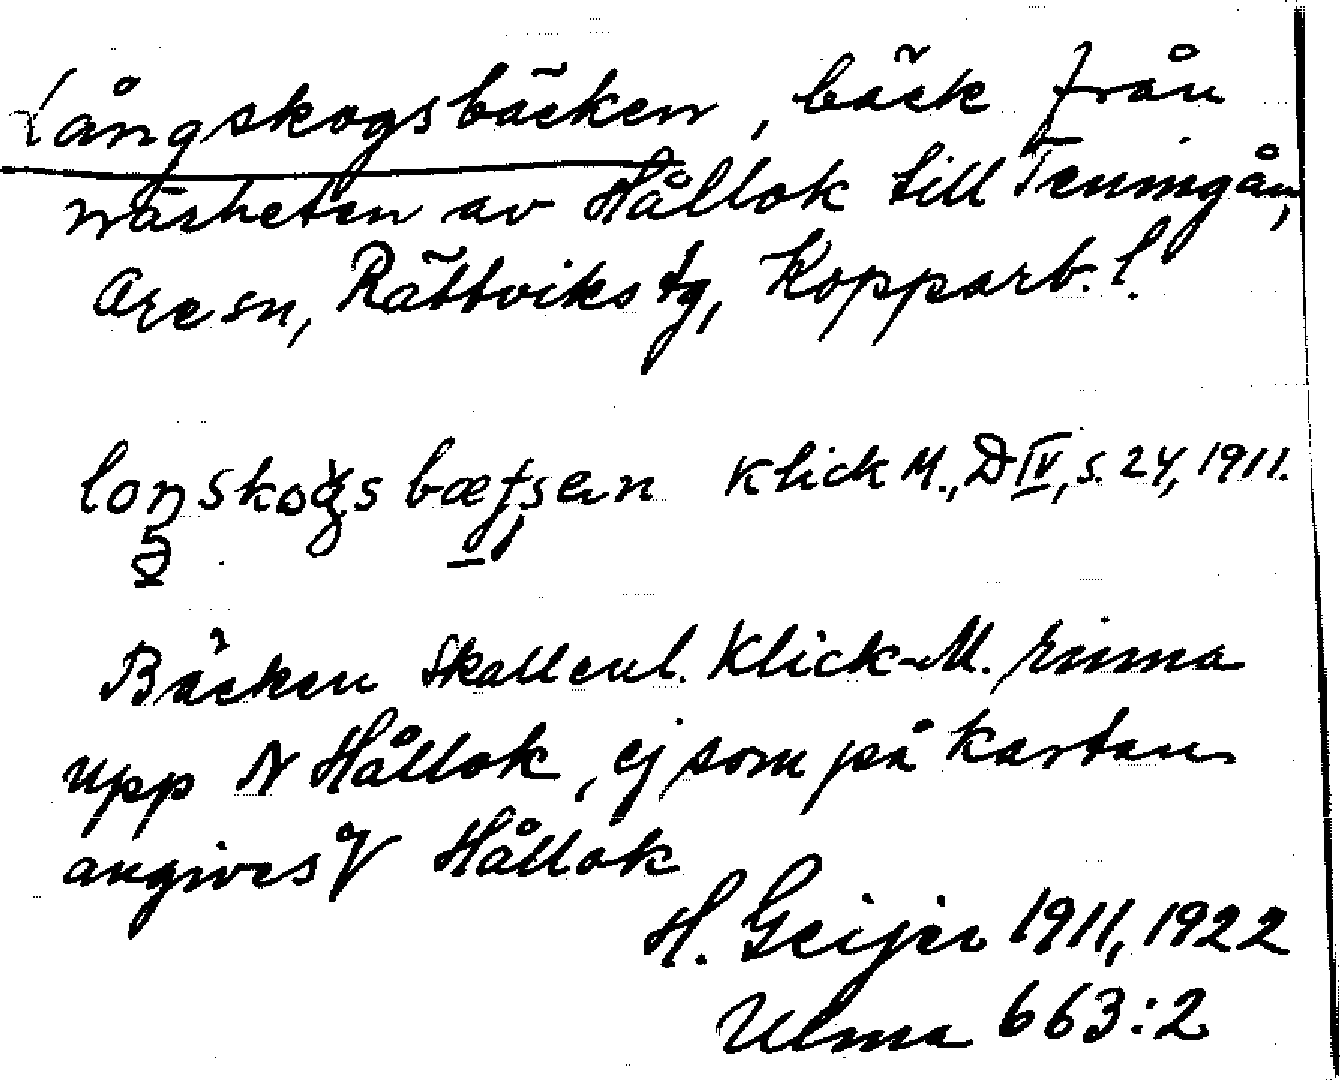 Långskogsbäcken, bäck från
närheten av Hållok till Tenningån,
Ore sn, Rättviks tg, Kopparb. l.
Klick M., D IV, s. 24, 1911.
Bäcken skall enl. Klick-M. rinna
upp N Hållok, ej som på kartan
angives V Hållok
H. Geijer 1911, 1922
Ulma 663:2